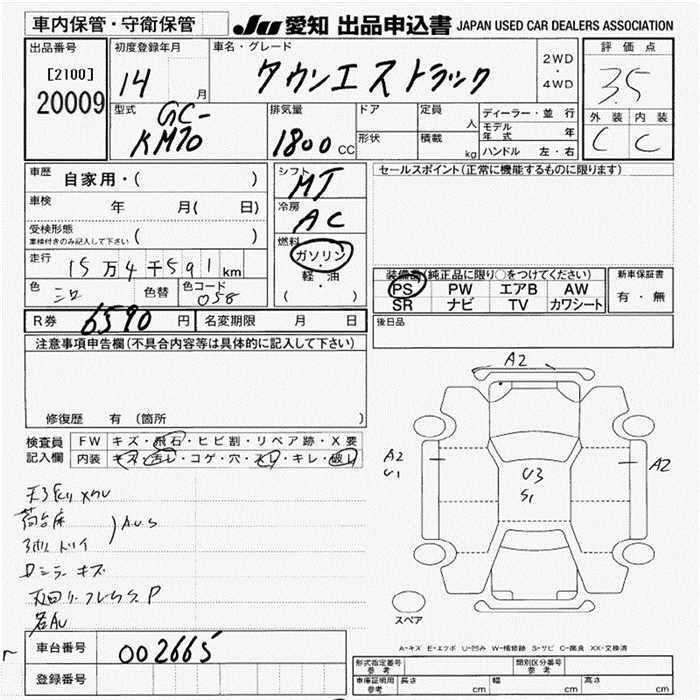 車内保管・守衛保管
JU 愛知 出品申込書 JAPAN USED CAR DEALERS ASSOCIATION
出品番号
[2100]
20009
初度登録年月
14 月
車名・グレード
タウンエストラック
2WD
・
4WD
評価点
3.5
外装 内装
C C
型式
GC-
KM70
排気量
1800 CC
ドア
形状
定員
人
積載
kg
ディーラー・並行
モデル年式 年
ハンドル 左・右
車歴 自家用・( )
車検 年 月( 日)
受検形態
車検付きのみ記入して下さい ( )
走行 15万4千591km
色 シロ 色替 色コード 058
シフト
MT
冷房
AC
燃料
ガソリン
・
軽・油
( )
セールスポイント(正常に機能するものに限ります)
装備書(純正品に限り○をつけてください)
PS PW エアB AW
SR ナビ TV カワシート
新車保証書
有・無
R券 6590 円 名変期限 月 日
後日品
注意事項申告欄(不具合内容等は具体的に記入して下さい)
修復歴 有 (箇所 )
検査員
記入欄
FW キズ・飛石・ヒビ割・リペア跡・X要
内装 キズ・汚レ・コゲ・穴・スレ・キレ・破レ
荷台床
AUS
キズ
P
各AU
A2
A2
U1
U3
S1
A2
スペア
車台番号 002665
登録番号
A-キズ E-エクボ U-凹み W-補修跡 S-サビ C-腐食 XX-交換済
形式指定番号
参考
類別区分番号
参考
車庫証明用
参考
長さ cm 幅 cm 高さ cm